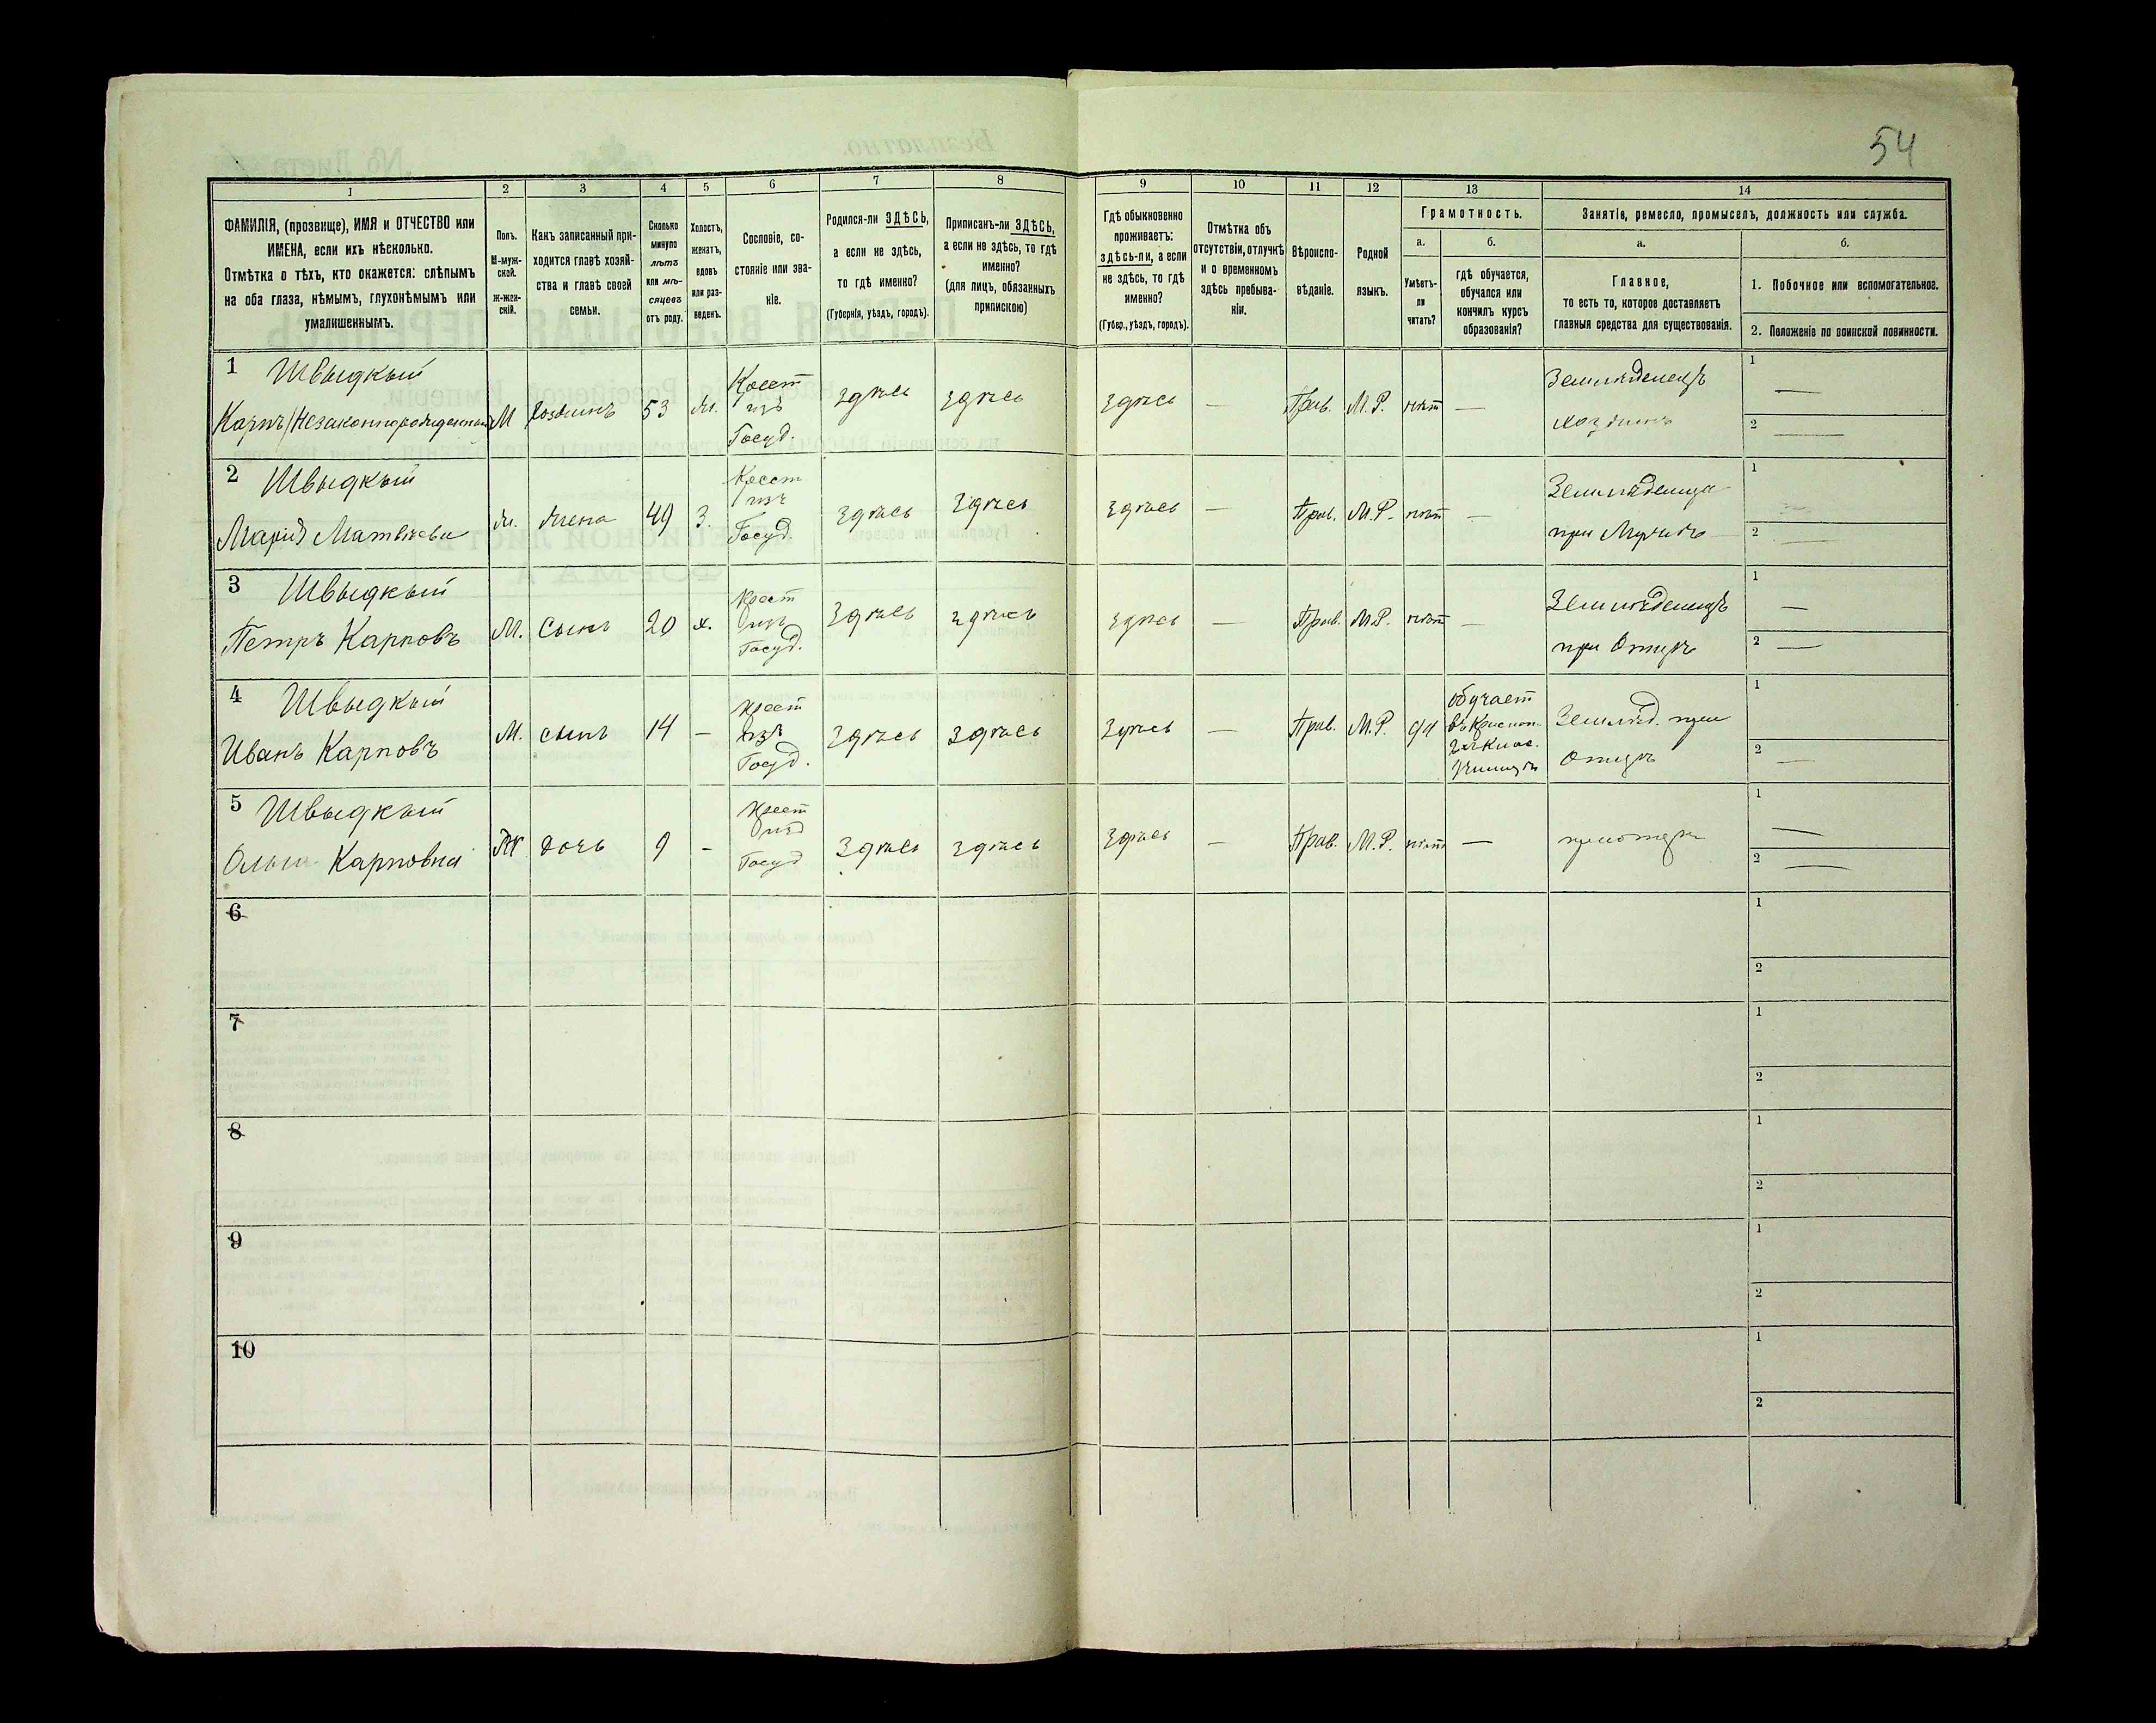 54
1 2 3 4 5 6 7 8 9 10 11 12 13 14
ФАМИЛІЯ, (прозвище), ИМЯ и ОТЧЕСТВО или
ИМЕНА, если ихъ нѣсколько.
Отмѣтка о тѣхъ, кто окажется: слѣпымъ
на оба глаза, нѣмымъ, глухонѣмымъ или
умалишеннымъ.
Полъ.
М-муж-
ской.
ж-жен-
скій.
Какъ записанный при-
ходится главѣ хозяй-
ства и главѣ своей
семьи.
Сколько
минуло
лѣтъ
или мѣ-
сяцевъ
отъ роду.
Холостъ,
женатъ,
вдовъ
или раз-
веденъ.
Сословіе, со-
стояніе или зва-
ніе.
Родился-ли ЗДѢСЬ,
а если не здѣсь,
то гдѣ именно?
(Губернія, уѣздъ, городъ).
Приписанъ-ли ЗДѢСЬ,
а если не здѣсь, то гдѣ
именно?
(для лицъ, обязанныхъ
припискою)
Гдѣ обыкновенно
проживаетъ:
здѣсь-ли, а если
не здѣсь, то гдѣ
именно?
(Губер., уѣздъ, городъ).
Отмѣтка объ
отсутствіи, отлучкѣ
и о временномъ
здѣсь пребыва-
ніи.
Вѣроиспо-
вѣданіе.
Родной
языкъ.
Грамотность.
а.
Умѣетъ-
ли
читать?
б.
гдѣ обучается,
обучался или
кончилъ курсъ
образованія?
Занятіе, ремесло, промыселъ, должность или служба.
а.
Главное,
то есть то, которое доставляетъ
главныя средства для существованія.
б.
1. Побочное или вспомогательное.
2. Положеніе по воинской повинности.
1 Швыдкый
Карпъ /Незаконнорожденный
М
хозяинъ
53
ж.
Крест
изъ
Госуд.
здѣсь
здѣсь
здѣсь
—
Прав.
М.Р.
нѣт
—
Земледелецъ
хозяинъ
1 —
2 —
2 Швыдкый
Марія Матвѣева
ж.
жена
49
З.
Крест
изъ
Госуд.
здѣсь
здѣсь
здѣсь
—
Прав.
М.Р.
нѣт
—
при Мужѣ
1
2
3 Швыдкый
Петръ Карповъ
М.
Сынъ
20
х.
Крест
изъ
Госуд.
здѣсь
здѣсь
здѣсь
—
Прав.
М.Р.
нѣт
—
Земледелецъ
при Отцѣ
1 —
2 —
4 Швыдкый
Иванъ Карповъ
М.
сынъ
14
—
крест
изъ
Госуд.
здѣсь
здѣсь
здѣсь
—
Прав.
М.Р.
да
обучает
Землед. при
Отцѣ
1
2 —
5 Швыдкый
Ольга Карповна
Ж
дочь
9
-
крест
изъ
Госуд
здѣсь
здѣсь
здѣсь
—
Прав.
М.Р.
нѣт
—
при отцѣ
1 —
2 —
6
1
2
7
1
2
8
1
2
9
1
2
10
1
2